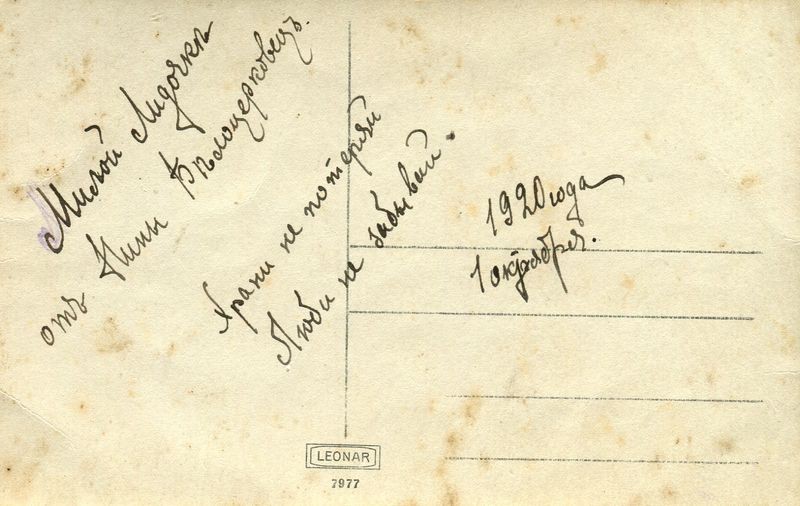 Милой Лидочкѣ
отъ Нины Бѣлоцерковецъ.
Храни не потеряй
Люби не забывай.
1920 года
1 октября.
LEONAR
7977